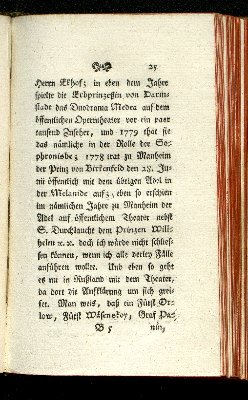 25
Herrn Ekhof; in eben dem Jahre
spielte die Erbprinzeßin von Darm-
stadt das Duodrama Medea auf dem
öffentlichen Operntheater vor ein paar
tausend Zuseher, und 1779 that sie
das nämliche in der Rolle der So-
phronisbe; 1778 trat zu Manheim
der Prinz von Birkenfeld den 28. Ju-
nii öffentlich mit dem übrigen Adel in
der Melanide auf; eben so erschien
im nämlichen Jahre zu Manheim der
Adel auf öffentlichem Theater nebst
S. Durchlaucht dem Prinzen Wil-
helen ꝛc. ꝛc. doch ich würde nicht schlies-
sen können, wenn ich alle derley Fälle
anführen wollte. Und eben so geht
es nun in Rußland mit dem Theater,
da dort die Aufklärung um sich grei-
fet. Man weis, daß ein Fürst Or-
low, Fürst Wäsenskoy, Graf Pa-
B 5 nin,